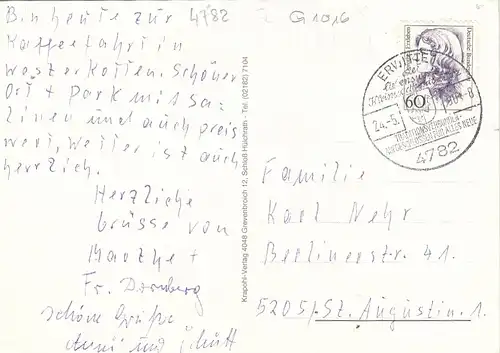 Bin heute zur 4782
Kaffeefahrt in
Westerkotten. Schöner
Ort + Park mit Sa-
linen und auch preis
wert, Wetter ist auch
herrlich.
Herzliche
Grüsse von
Marthe +
Fr. Dornberg
schöne Grüße
und
G 1016
Krapohl-Verlag 4048 Grevenbroich 12, Schloß Hülchrath · Tel. (02182) 7104
Deutsche Bundespost
60
ERWITTE
24.-5.
4782
Familie
Karl Nehr
Berlinerstr. 41.
5205/-St. Augustin. 1.